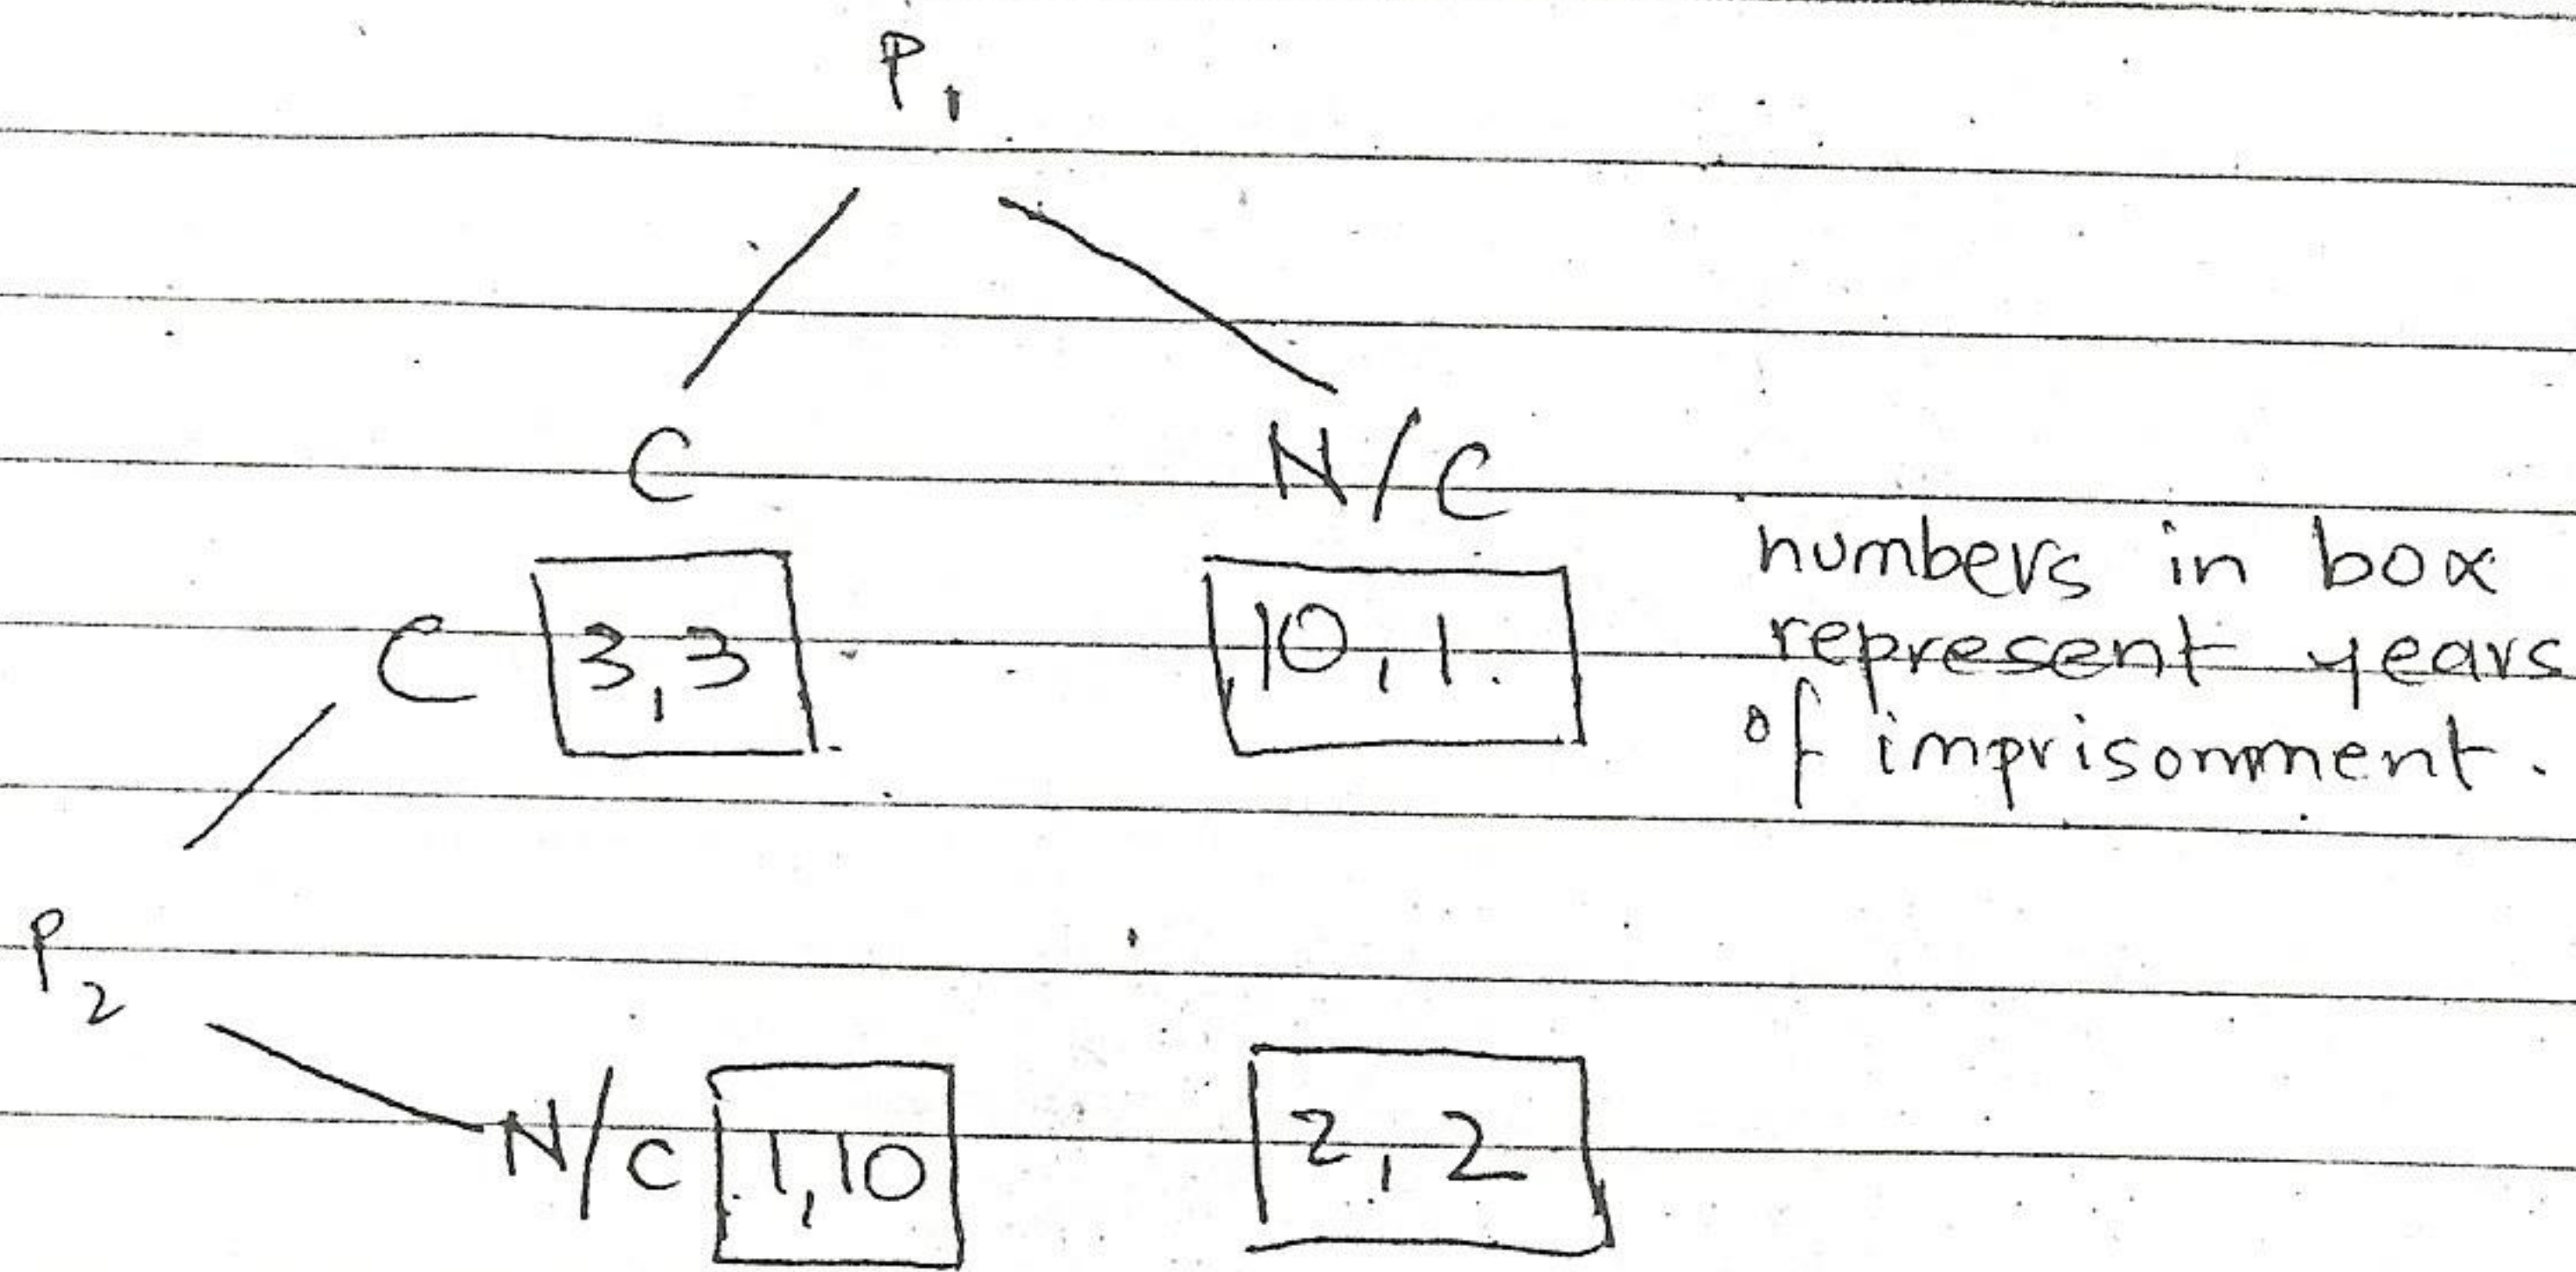 P1
C N/C
numbers in box
C 3,3 10,1.
represent years
of imprisonment.
P2
N/C 1,10 2,2